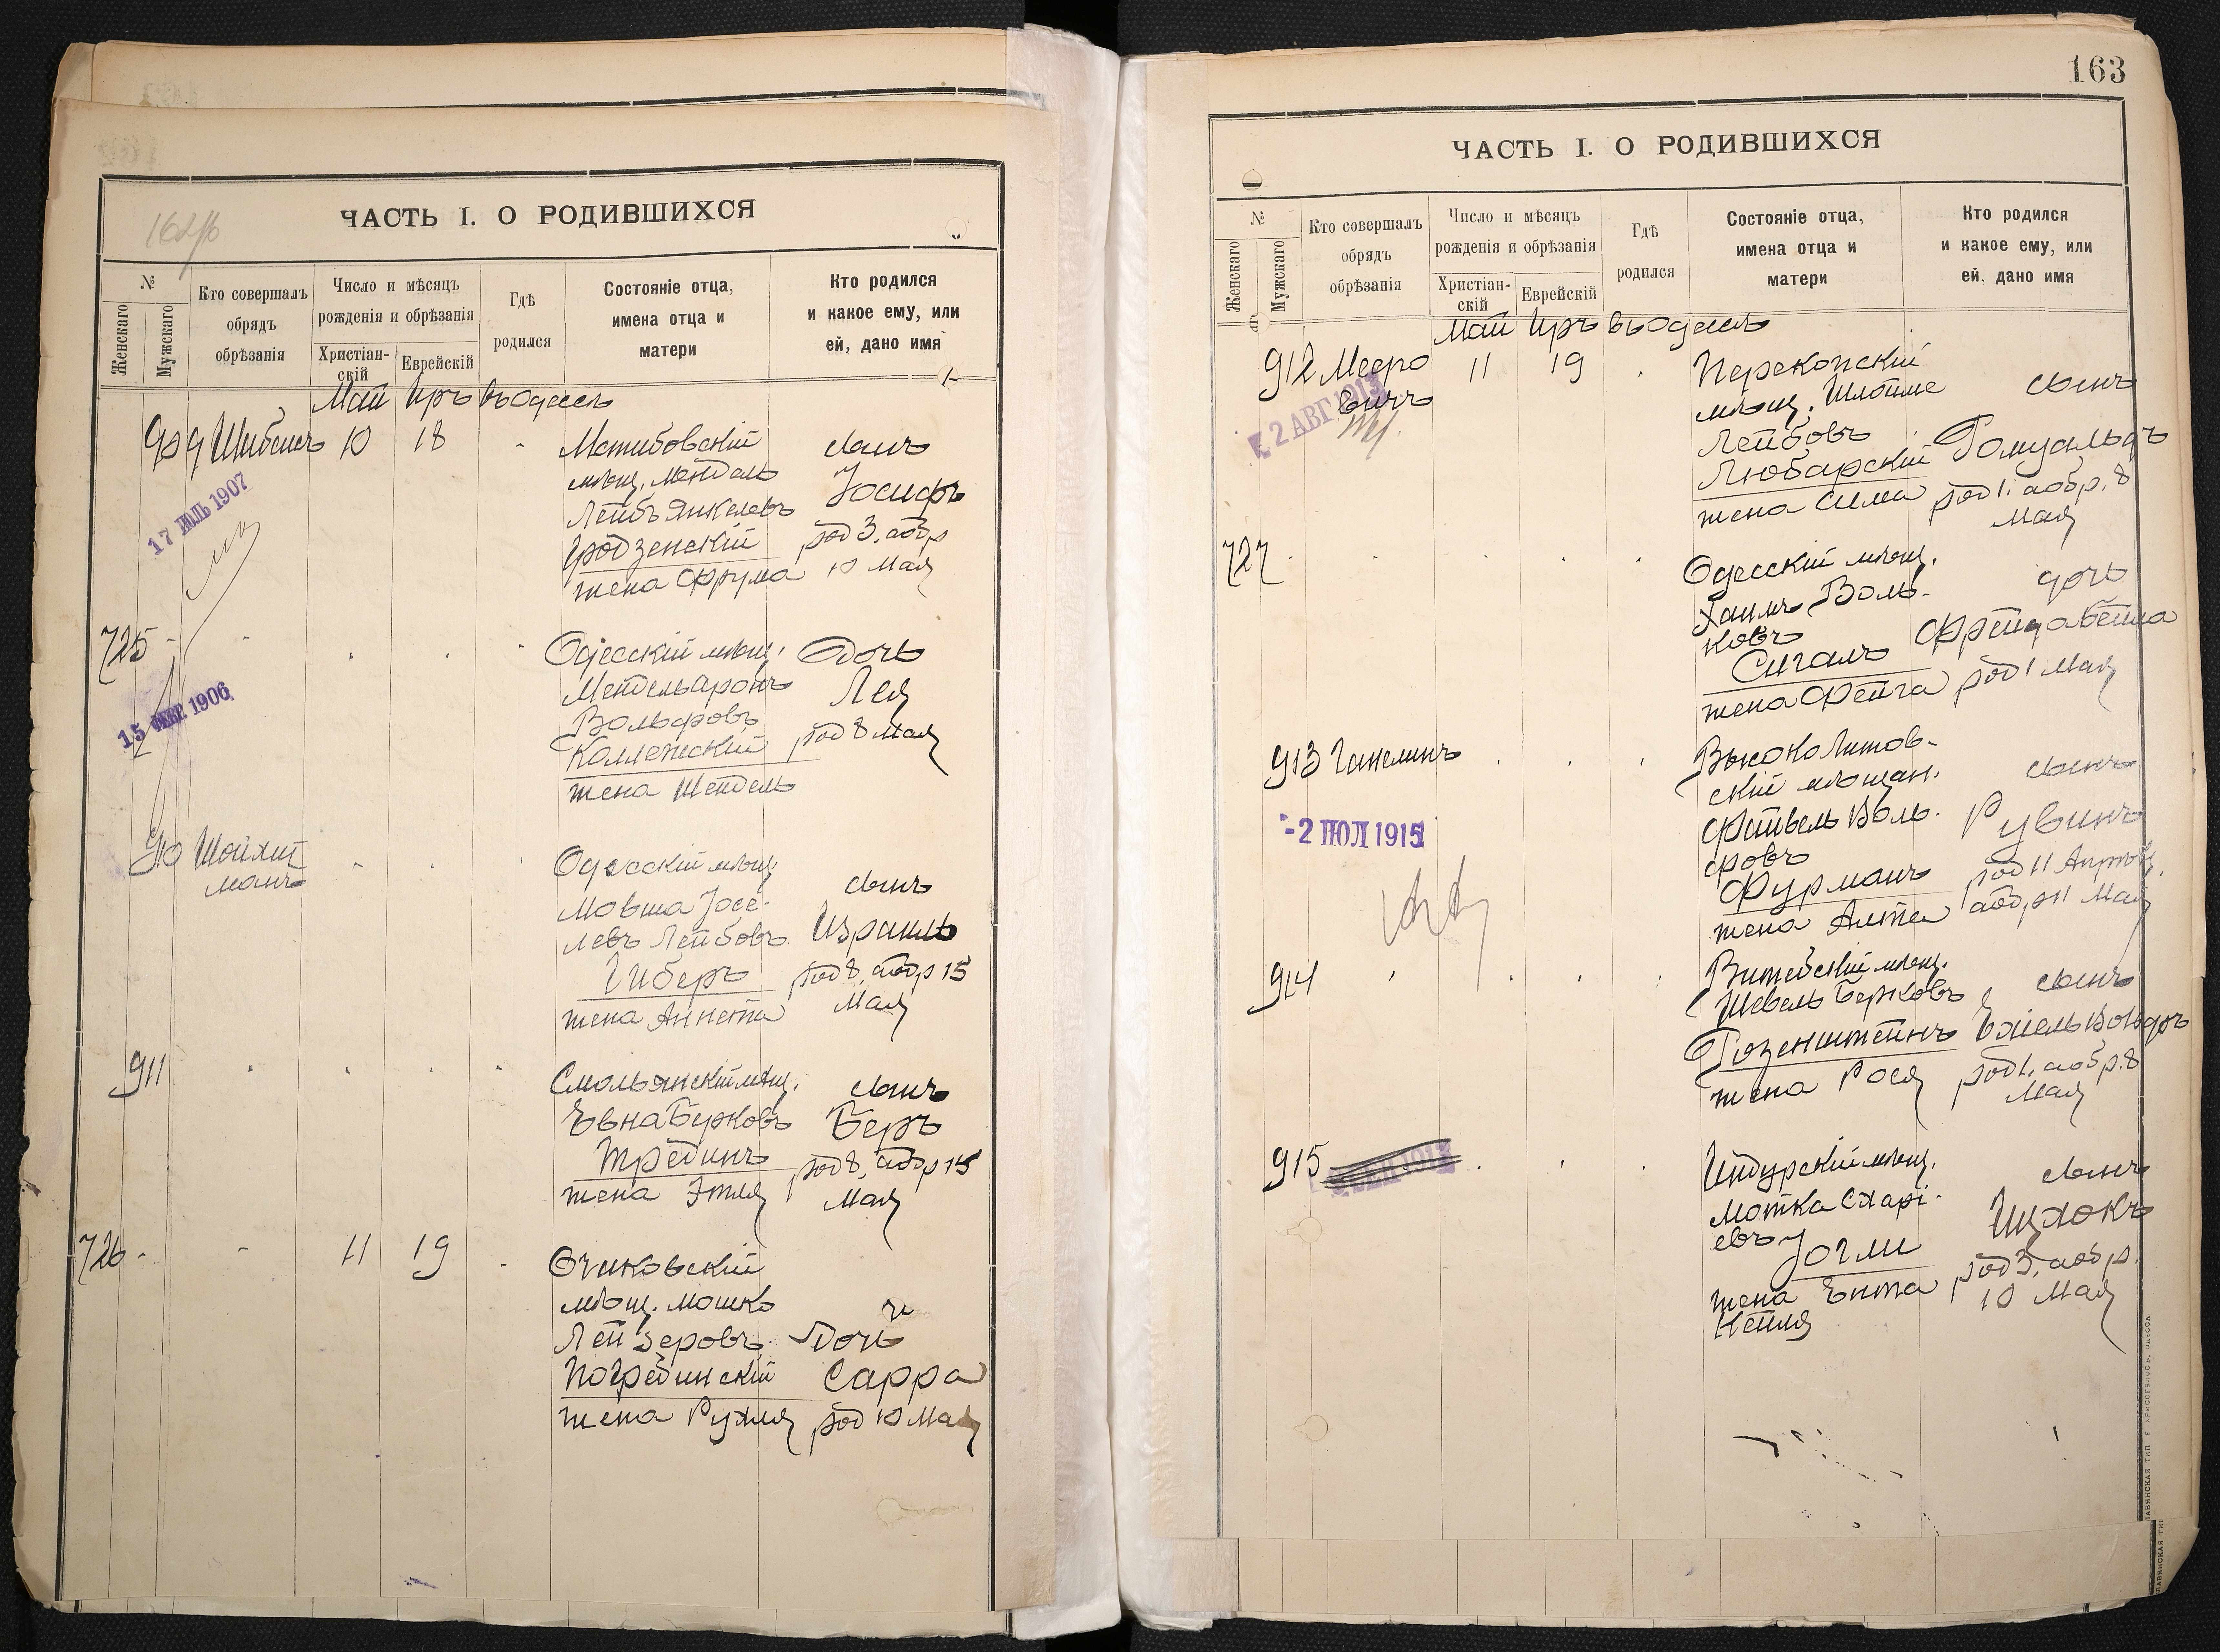 162об
ЧАСТЬ I. О РОДИВШИХСЯ
№
Женскаго
Мужскаго
Кто совершалъ
обрядъ
обрѣзанія
Число и мѣсяцъ
рожденія и обрѣзанія
Христіан-
скій
Еврейскій
Гдѣ
родился
Состояніе отца,
имена отца и
матери
Кто родился
и какое ему, или
ей, дано имя
Май Иръ въ Одессѣ
909 10 18
мѣщ. Мендель
Лейбъ Янкелевъ
Гродзенскій
жена Фрума
сынъ
Іосифъ
род 3, а обр
10 Мая
17 ІЮЛЬ 1907
725
Одесскій мѣщ.
Мендель Аронъ
Вольфовъ
Коллежскій
жена Шендель
Дочь
Лея
род 8 Мая
15 1906
910 Шойхит
манъ
Одесскій мѣщ
Мовша Іосе-
левъ Лейбовъ
Гиберъ
жена Аннета
сынъ
Израиль
род 8, а обр 15
Мая
911
Смольянскій мѣщ.
Евна Берковъ
Тредин
жена Этля
сынъ
Беръ
род 8, а обр 15
Мая
726 11 19
Очаковскій
мѣщ. Мошко
Лейзеровъ
Погребинскій
жена Рухля
Дочь
Сарра
род 10 Мая
163
ЧАСТЬ I. О РОДИВШИХСЯ
№
Женскаго
Мужскаго
Кто совершалъ
обрядъ
обрѣзанія
Число и мѣсяцъ
рожденія и обрѣзанія
Христіан-
скій
Еврейскій
Гдѣ
родился
Состояніе отца,
имена отца и
матери
Кто родился
и какое ему, или
ей, дано имя
Май Иръ въ Одессѣ
912 Мееро
вичъ
11 19
2 АВГ 1913
Перекопскій
мѣщ. Шлёйме
Лейбовъ
Любарскій
жена Сима
сынъ
Ромуальдъ
род 1, а обр. 8
Мая
727
Одесскій мѣщ.
Хаимъ Воль-
ковъ
Сигалъ
жена Фейга
дочь
Фрейда Бейла
род 1 Мая
913 Ганелинъ
-2 ІЮЛ 1915
Высоко Литов-
скій мѣщан.
Файвель Воль-
фовъ
Фурманъ
жена Алта
сынъ
Рувинъ
род 11 Апрѣля
а обр 11 Мая
914
Шевель Берковъ
Розенштейнъ
жена Рося
сынъ
род 1, а обр. 8
Мая
915
Индурскій мѣщ.
Мотка Схарі-
евъ
Іогли
жена Ента
Кейля
сынъ
Ицхокъ
род 3, а обр.
10 Мая